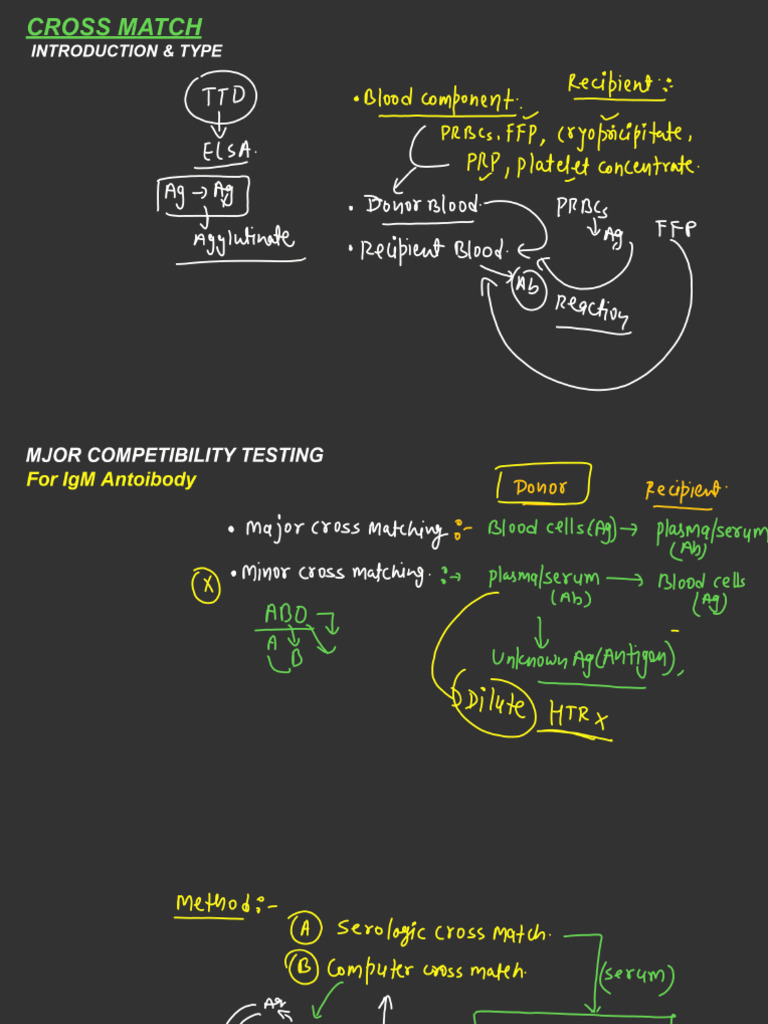 CROSS MATCH
INTRODUCTION & TYPE
TTD
ELSA.
Ag → Ag
Agglutinate
Recipient :-
• Blood component.
PRBCs, FFP, cryopricipitate,
PRP, platelet concentrate.
• Donor Blood
PRBCs
Ag
FFP
• Recipient Blood.
Ab
Reaction
MJOR COMPETIBILITY TESTING
For IgM Antoibody
Donor
Recipient.
• Major cross matching :- Blood cells (Ag) → plasma/serum
(Ab)
X
• Minor cross matching. :→ plasma/serum → Blood cells
(Ab)
(Ag)
ABO
A
B
Unknown Ag (Antigen),
Dilute
HTRX
Method :-
A Serologic cross match.
B Computer cross match.
(serum)
Ag